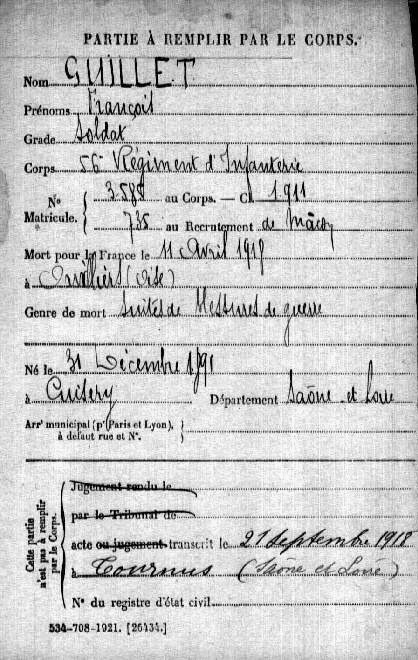 PARTIE À REMPLIR PAR LE CORPS.
Nom GUILLET
Prénoms François
Grade Soldat
Corps 56e Régiment d'Infanterie
N° 3585 au Corps. — Cl 1911
Matricule. 735 au Recrutement de Mâcon
Mort pour la France le 11 Avril 1918
à (Oise)
Genre de mort Suites de Blessures de guerre
Né le 31 Décembre 1891
à Cuisery Département Saône et Loire
Arrt municipal (pr Paris et Lyon), à défaut rue et N°.
Cette partie n'est pas à remplir par le Corps.
Jugement rendu le
par le Tribunal de
acte ou jugement transcrit le 21 septembre 1918
à Tournus (Saône et Loire)
N° du registre d'état civil
534-708-1921. [26434.]